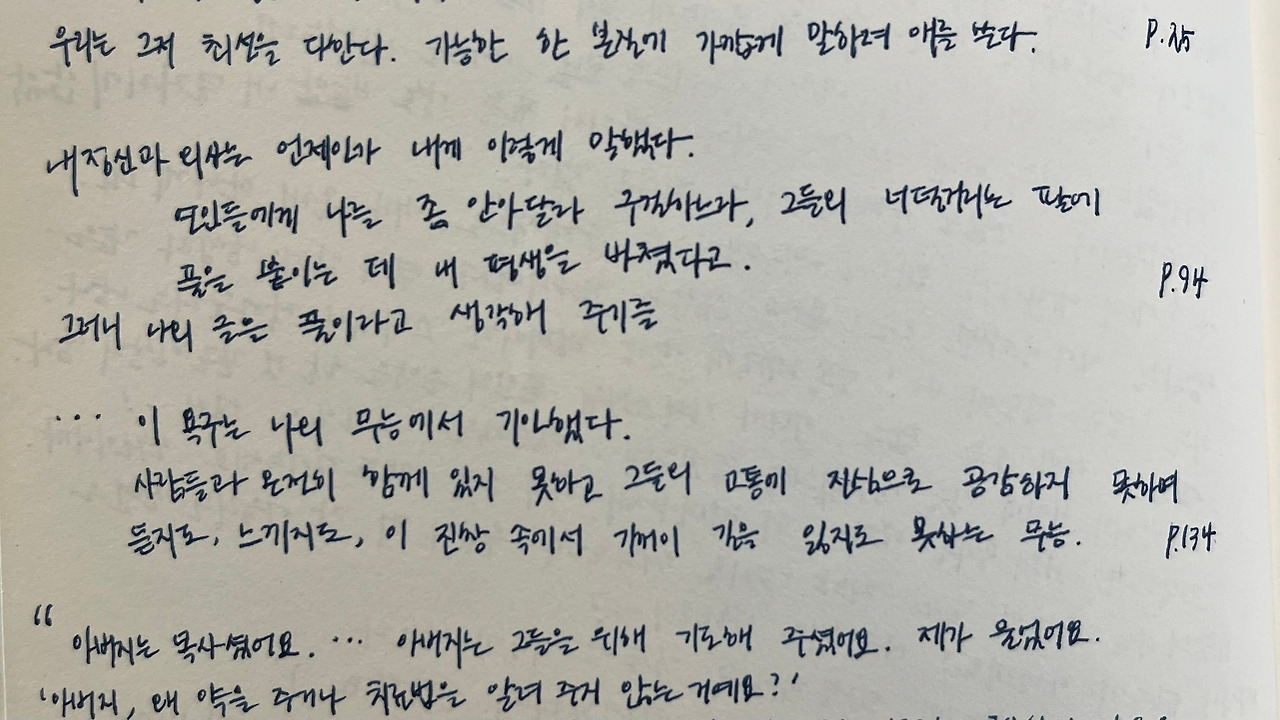 우리는 그저 최선을 다한다. 가능한 한 본질에 가깝게 말하려 애를 쓴다. P.25
내 정신과 의사는 언제인가 내게 이렇게 말했다.
연인들에게 나를 좀 안아달라 구걸하느라, 그들의 너덜거리는 팔에
풀을 붙이는 데 내 평생을 바쳤다고. P.94
그러니 나의 글은 풀이라고 생각해 주기를
... 이 욕구는 나의 무능에서 기인했다.
사람들과 온전히 함께 있지 못하고 그들의 고통에 진심으로 공감하지 못하며
듣지도, 느끼지도, 이 진창 속에서 기꺼이 길을 잃지도 못하는 무능. P.134
“ 아버지는 목사셨어요. ... 아버지는 그들을 위해 기도해 주셨어요. 제가 물었어요.
'아버지, 왜 약을 주거나 치료법을 알려 주지 않는 거예요?'